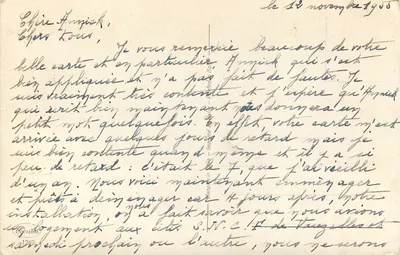 le 12 novembre 1955
Chère Annick,
Chers Tous,
Je vous remercie beaucoup de votre
belle carte et en particulier Annick qui s'est
bien appliquée et n'a pas fait de fautes. Je
suis vraiment très contente et j'espère qu'Annick
qui écrit bien maintenant donnera un
petit mot quelquefois. En effet, votre carte m'est
arrivée avec quelques jours de retard mais je
suis bien contente quand même et il y a si
peu de retard : c'était le 7, que j'ai vieilli
d'un an. Nous voici maintenant emménager
et prêts à déménager car 4 jours après, notre
installation, on nous a fait savoir que nous avions
un logement aux cités S.N.C.F de et
samedi prochain ou l'autre, nous ne serons